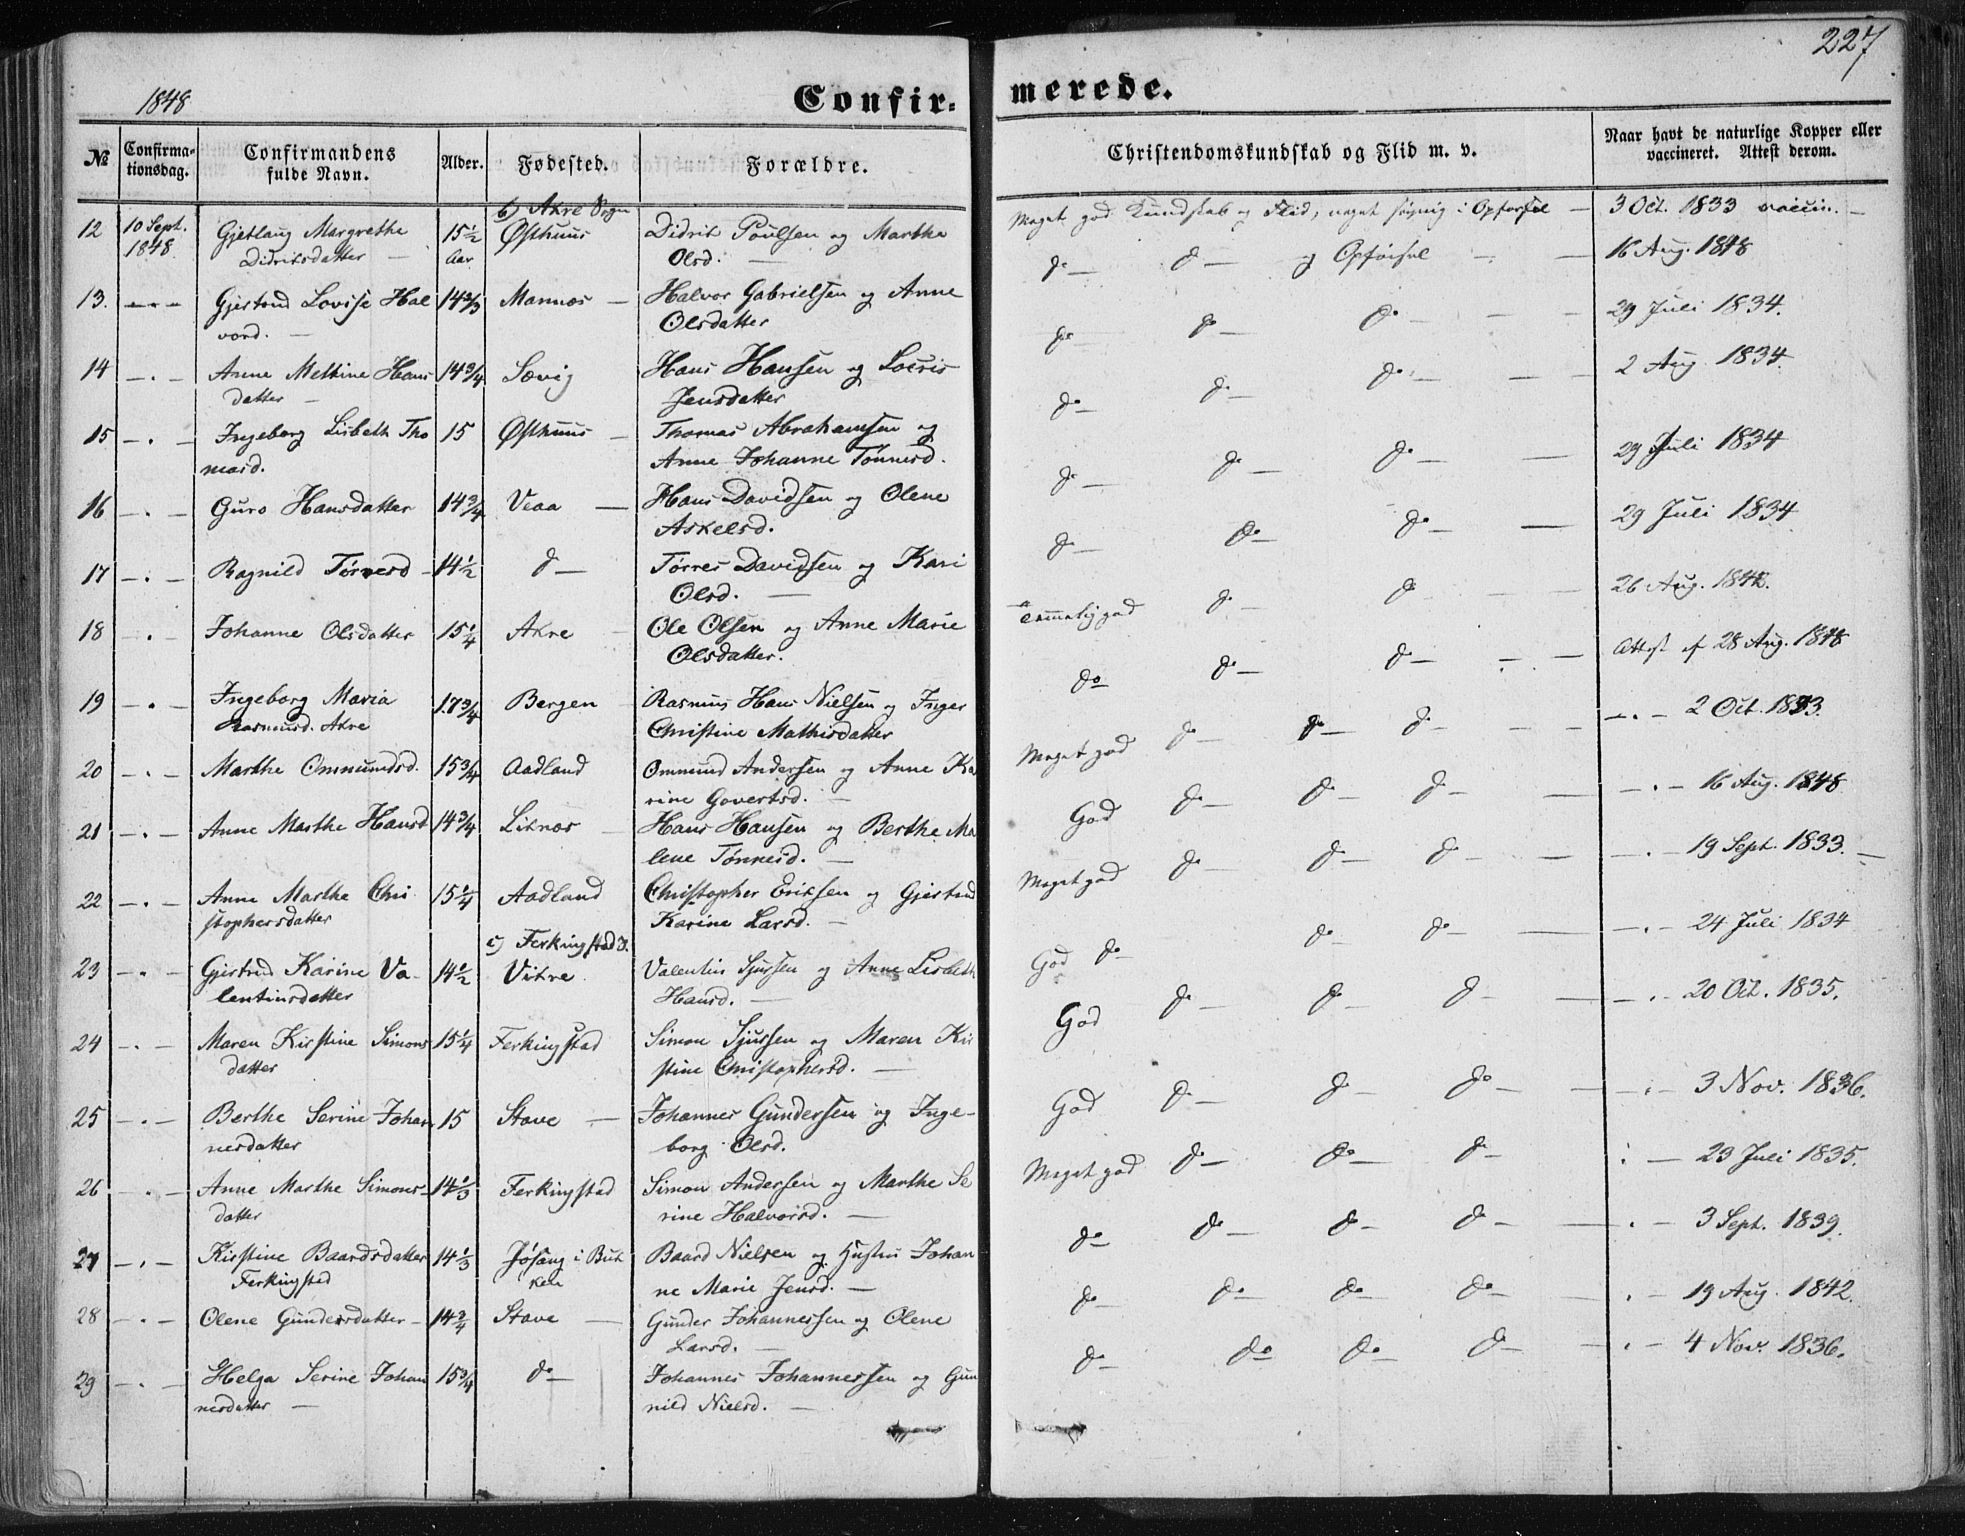 1848
Confir-
№
Confirma-
tionsdag.
Confirmandens
fulde Navn.
Alder.
Fødested.
Forældre.
b) Akre Sogn
12 10 Sept. Gjetlaug Margrethe 15½ Østhuus Didrik Poulsen og Martha
1848. Didriksdatter — Aar Olsd. —
13. —.— Gjertrud Lovise Hal 14⅔ Mannæs — Halvor Gabrielsen og Anne
vord. — Olsdatter
14 —.— Anne Meltine Hans 14¾ Sævig Hans Hansen og Lovris
datter — Jensdatter
15 —.— Ingeborg Lisbeth Tho 15 Østhuus — Thomas Abrahamsen og
masd. Anne Johanne Tønnesd.
16 —.— Guro Hansdatter 14¾ Veaa — Hans Davidsen og Olene
Askelsd.
17 —.— Ragnild Tørresd — 14½ do — Tørres Davidsen og Kari
Olsd. —
18 —.— Johanne Olsdatter 15¼ Akre — Ole Olsen og Anne Marie
Olsdatter.
19 —.— Ingeborg Maria 17¾ Bergen — Rasmus Hans Nielsen og Inger
Rasmusd. Akre Christine Mathisdatter
20 —.— Marthe Ommundsd. 15¾ Aadland Ommund Andersen og Anne Ka
rine Govertsd. —
21 —.— Anne Marthe Hansd 14¾ Liknæs — Hans Hansen og Berthe Ma
lene Tønnesd. —
22 —.— Anne Marthe Chri 15¼ Aadland Christopher Eriksen og Gjertrud
stophersdatter Karine Larsd. —
c) Ferkingstad S.
23 —.— Gjertrud Karine Va- 14½ Vikre Valentin Sjursen og Anne Lisbeth
lentinsdatter Hansd. —
24 —.— Maren Kirstine Simons 15¼ Ferkingstad Simon Sjursen og Maren Kir
datter stine Christophersd. —
25 —.— Berthe Serine Johan 15 Stave — Johannes Gundersen og Inge-
nesdatter borg Olsd.
26 —.— Anne Marthe Simons- 14⅓ Ferkingstad Simon Andersen og Marthe Se
datter rine Halvorsd. —
27 —.— Kirstine Baardsdatter 14⅓ Jøsang i Buk Baard Nielsen og Hustru Johan
Ferkingstad ken ne Marie Jensd. —
28 —.— Olene Gundersdatter — 14¾ Stave — Gunder Johannessen og Olene
Larsd. —
29 —.— Helga Serine Johan 15¾ do — Johannes Johannessen og Gun
nesdatter — nild Nielsd. —
227
merede.
Christendomskundskab og Flid m. v.
Naar havt de naturlige Kopper eller
vaccineret. Attest derom.
Meget god Kundskab og Flid, noget søvnig i Opførsel — 3 Oct. 1833 vaccin. —
do — do — og Opførsel — — 16 Aug. 1848
do — do — do — — — 29 Juli 1834.
do — do — do — — 2 Aug. 1834.
do — do — do — — 29 Juli 1834
do — do — do — — 29 Juli 1834
temmelig god do — do — — — 26 Aug. 1842.
do do — do — — — Attest af 28 Aug. 1848
Meget god do — do — do — — — —.— 2 Oct. 1833.
God do — do — do — — —.— 16 Aug. 1848
Meget god do — do — do — — —.— 19 Sept. 1833. —
God do — do — do — —.— 24 Juli 1834
God do — do — do — — —.— 20 Oct. 1835.
God do — do — do — — —.— 3 Nov. 1836.
Meget god do — do — do — . — 23 Juli 1835.
do do — do — do — — . — 3 Sept. 1839.
do — do — do — do — — . — 19 Aug. 1842.
do — do — do — do — — . — 4 Nov. 1836.